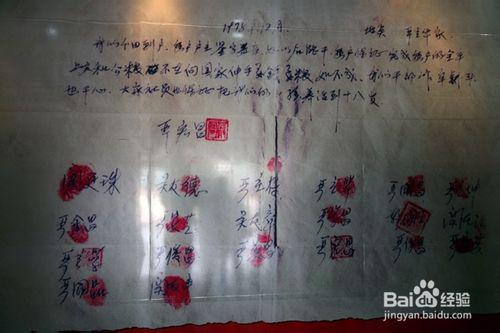 1978.12月. 地点 严立华家
我们分田到户,每户户主签字盖章,如以后能干,每户保证完成每户的全年
上交和公粮,不在向国家伸手要钱要粮,如不成,我们干部作牢刹头
也干心,大家社员也保证把我们的小孩养活到十八岁
严宏昌
关廷珠 关友德 严立符 严立华 严国昌 严立坤
严金昌 严家芝 关友章 严学昌
严立学 严俊昌 严美昌 严宏昌 严付昌
严国品 关友申
Baidu经验
jingyan.baidu.com